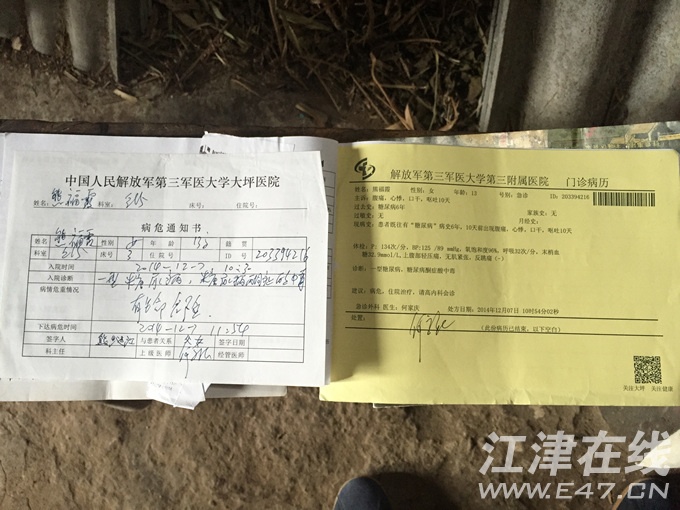 中国人民解放军第三军医大学大坪医院
姓名: 熊福霞 科室: 急诊 床号: 住院号:
病危通知书
姓名 熊福霞 性别 女 年龄 13 籍贯
科室 床号 ID号 203394216
入院时间 2014-12-7 10:30
入院诊断
病情危重情况
有生命危险
下达病危时间 2014-12-7 11:25
签字人 与患者关系 父女 签字日期
科主任 上级医师 经管医师
解放军第三军医大学第三附属医院 门诊病历
姓名: 熊福霞 性别: 女 年龄: 13 科别: 急诊 203394216
主诉: 腹痛、心悸、口干、呕吐10天
过去史: 糖尿病6年 家族史: 无
过敏史: 无 月经史: 无
现病史: 患者既往有"糖尿病"病史6年, 10天前出现腹痛、心悸、口干, 呕吐10天
体检: P: 134次/分, BP: 125 /89 mmHg, 氧饱和度90%, 呼吸32次/分, 末梢血
糖32.9mmol/L, 上腹部轻压痛, 无肌紧张、反跳痛(-)
诊断: 一型糖尿病, 糖尿病酮症酸中毒
建议: 病危, 住院治疗, 请高内科会诊
急诊外科 医生: 何家庆 处方日期: 2014年12月07日 10时54分02秒
处置:
(此份病历已结束, 以下空白)
关注大坪 关注健康
江津在线
WWW.E47.CN